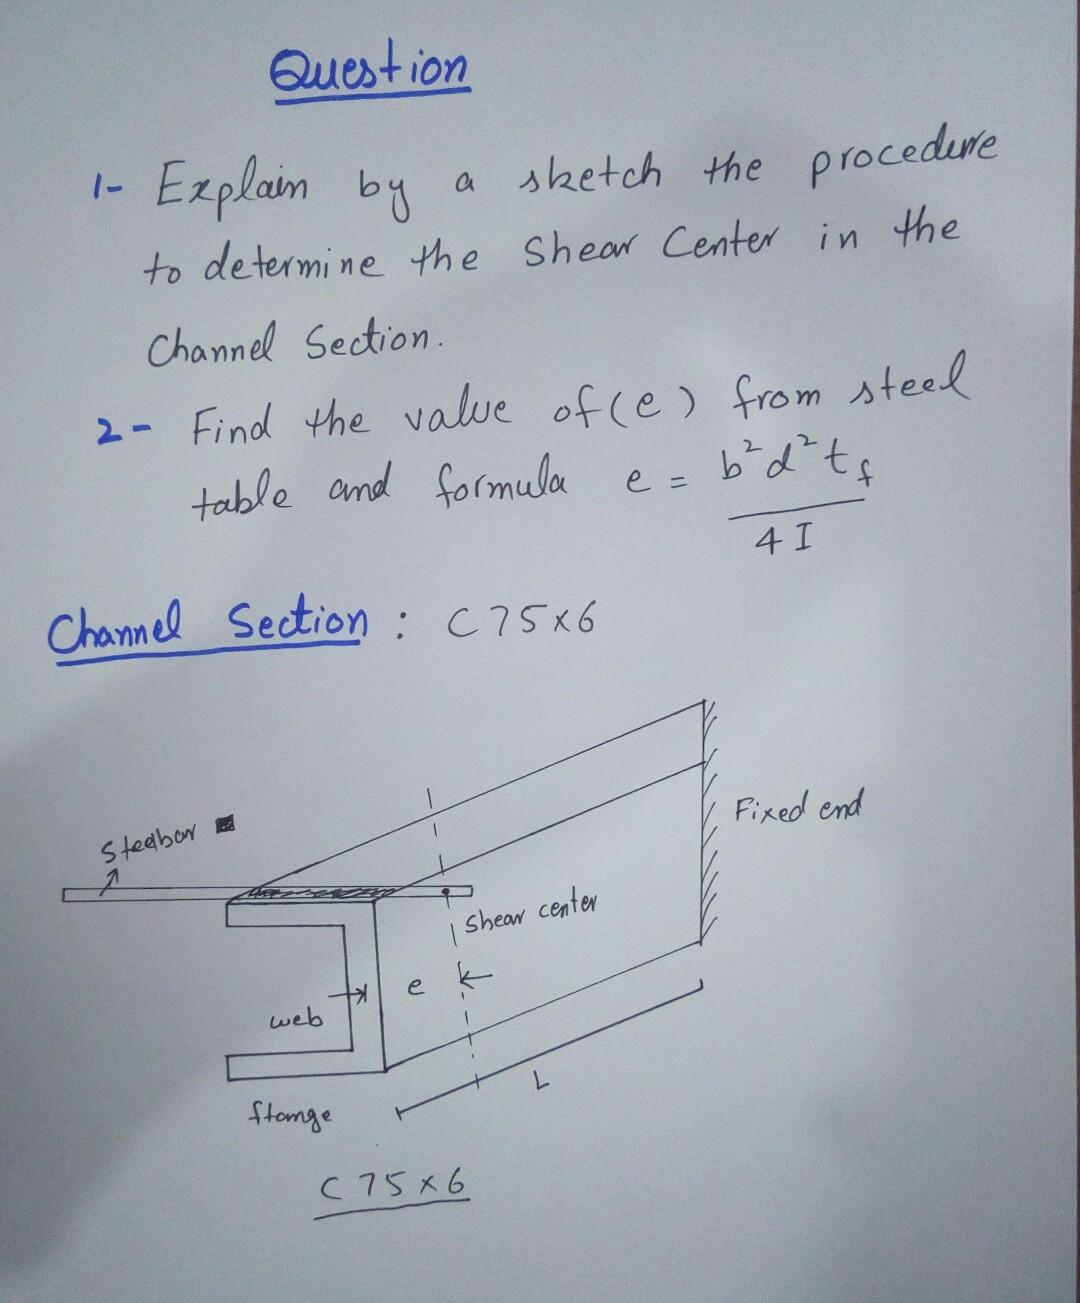 Question
1- Explain by a sketch the procedure
to determine the Shear Center in the
Channel Section.
2- Find the value of (e) from steel
table and formula e = b²d²tf
4 I
Channel Section : C 75x6
Steelbar
Fixed end
Shear center
e
web
L
flange
C 75 x 6